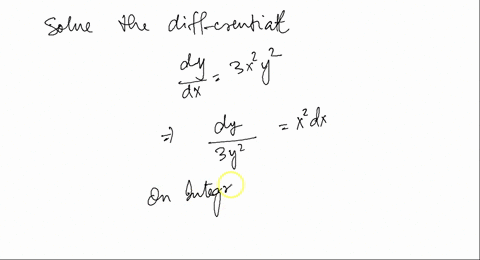 Solve the differential
dy/dx = 3x²y²
⇒ dy/3y² = x²dx
On Integr